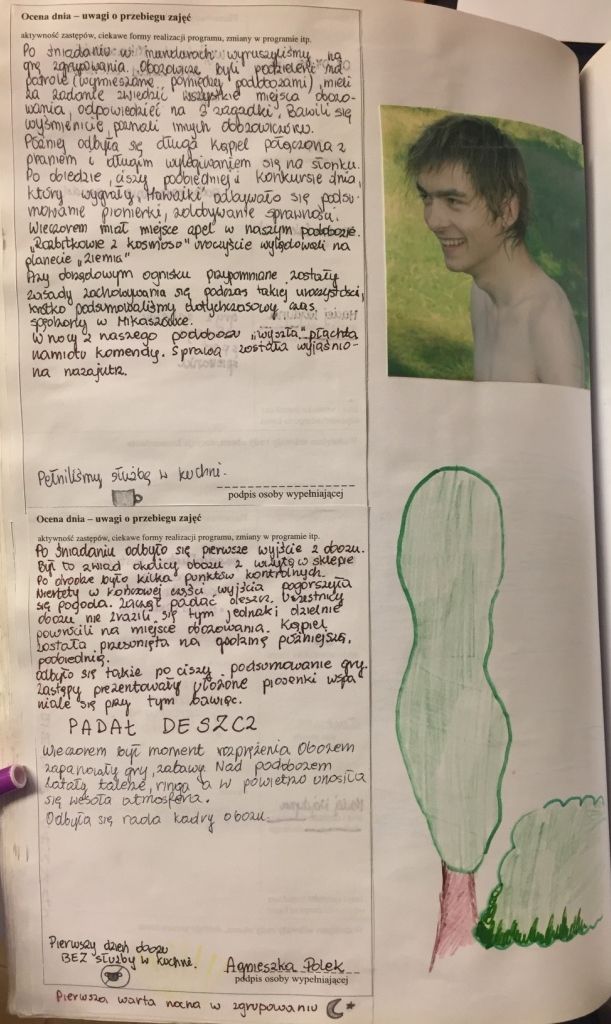 Ocena dnia – uwagi o przebiegu zajęć
aktywność zastępów, ciekawe formy realizacji programu, zmiany w programie itp.
Po śniadaniu w mundurach wyruszyliśmy na
grę zgrupowania. Obozowicze byli podzieleni na
patrole (wymieszane pomiędzy podobozami), mieli
za zadanie zwiedzić wszystkie miejsca obozo-
wania, odpowiedzieć na 3 zagadki. Bawili się
wyśmienicie, poznali innych obozowiczów.
Później odbyła się długa kąpiel połączona z
praniem i długim wylegiwaniem się na słonku.
Po obiedzie, ciszy poobiedniej i konkursie dnia,
który wygrały "Hawajki" odbywało się podsu-
mowanie pionierki, zdobywanie sprawności.
Wieczorem miał miejsce apel w naszym podobozie.
"Rozbitkowie z kosmosu" uroczyście wylądowali na
planecie "Ziemia"
Przy obrzędowym ognisku przypomniane zostały
zasady zachowywania się podczas takiej uroczystości,
krótko podsumowaliśmy dotychczasowy czas
spędzony w Mikaszówce.
W nocy z naszego podobozu "wyszła" płachta
namiotu komendy. Sprawa została wyjaśnio-
na nazajutrz.
Pełniliśmy służbę w kuchni.
podpis osoby wypełniającej
Ocena dnia – uwagi o przebiegu zajęć
aktywność zastępów, ciekawe formy realizacji programu, zmiany w programie itp.
Po śniadaniu odbyło się pierwsze wyjście z obozu.
Był to zwiad okolicy obozu z wizytą w sklepie
Po drodze było kilka punktów kontrolnych.
Niestety w końcowej części wyjścia pogorszyła
się pogoda. Zaczął padać deszcz. Uczestnicy
obozu nie zrazili się tym jednak i dzielnie
powrócili na miejsce obozowania. Kąpiel
została przesunięta na godzinę późniejszą,
poobiednią.
Odbyło się także po ciszy podsumowanie gry.
Zastępy prezentowały ułożone piosenki wspa
niale się przy tym bawiąc.
PADAŁ DESZCZ
Wieczorem był moment rozprężenia Obozem
zapanowały gry, zabawy. Nad podobozem
latały talerze, ringo a w powietrzu unosiła
się wesoła atmosfera.
Odbyła się rada kadry obozu.
Pierwszy dzień obozu
BEZ służby w kuchni.
Agnieszka Polek
podpis osoby wypełniającej
Pierwsza warta nocna w zgrupowaniu